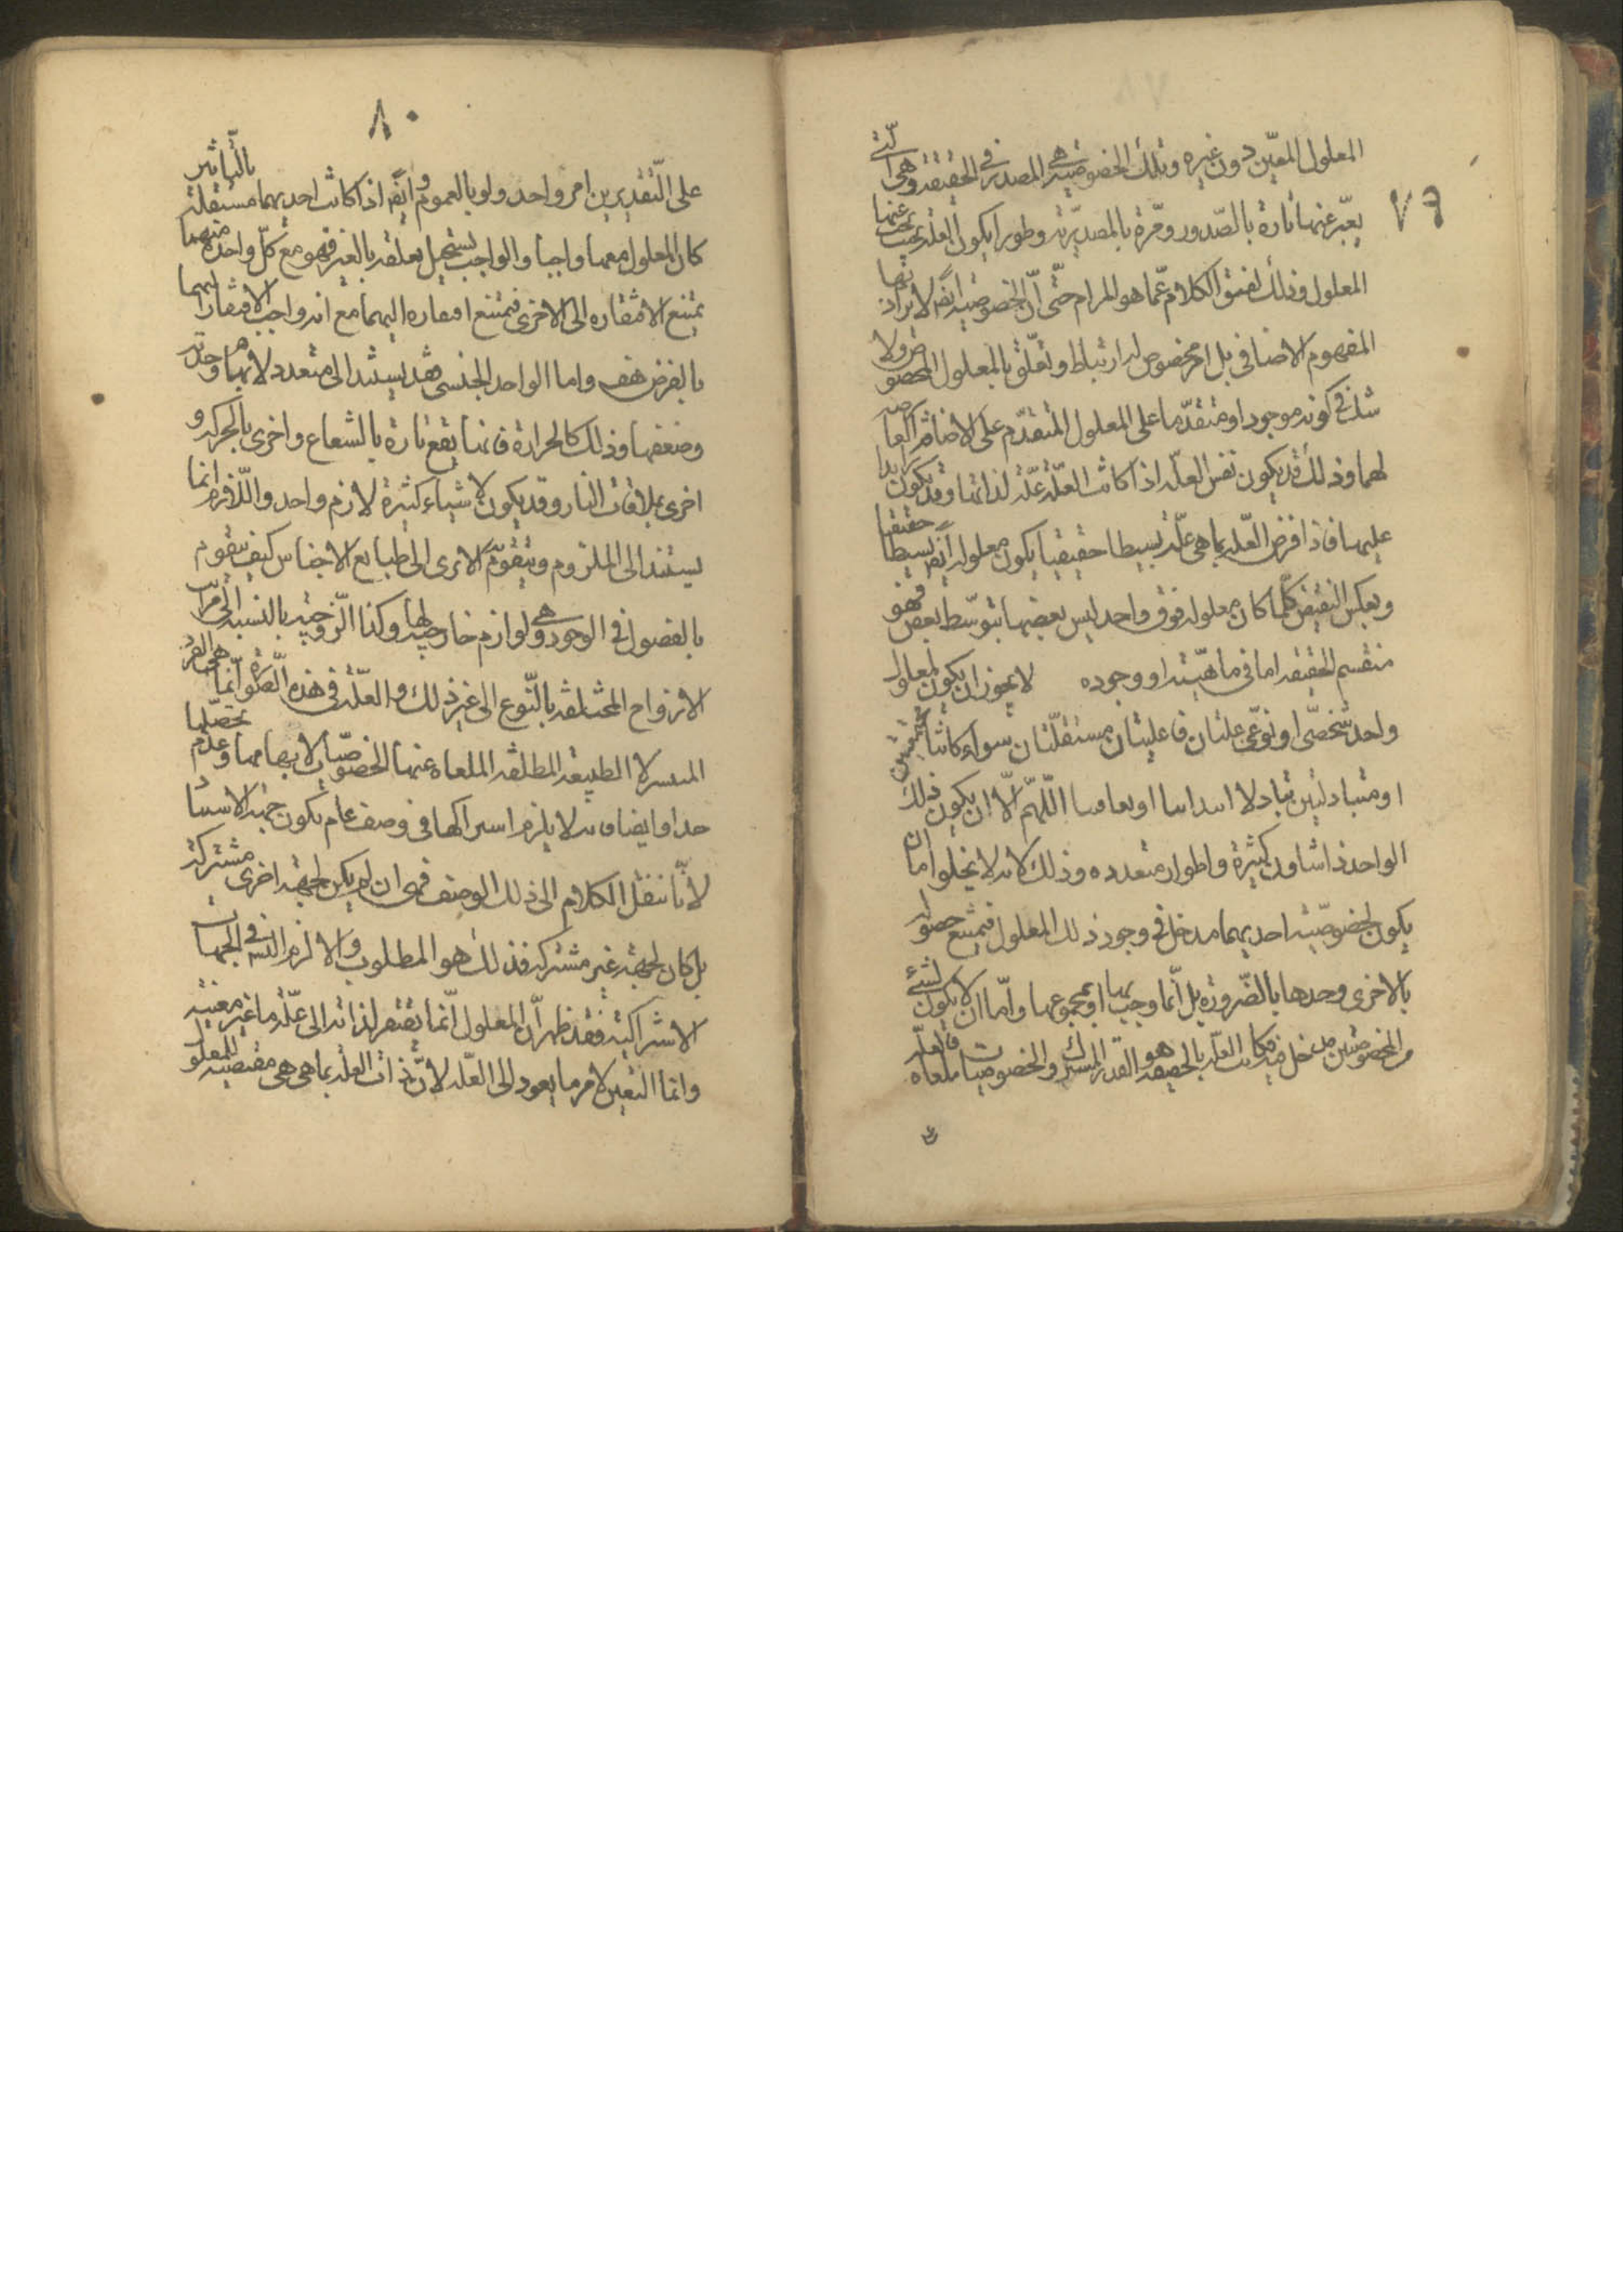 ٧٦
المعلول المعيّن دون غيره وتلك الخصوصية هي المصدر في الحقيقة وهي الّتي
يعبّر عنها تارة بالصّدور ومرّة بالمصدريّة وطورا بكون العلة بحيث يجب عنها
المعلول وذلك لضيق الكلام عمّا هو المرام حتّى انّ الخصوصية ايضا لا يراد بها
المفهوم الاضافي بل امر مخصوص له ارتباط وتعلّق بالمعلول المخصوص ولا
شك في كونه موجودا ومتقدّما على المعلول المتقدّم على الاضافة العارضة
لهما وذلك قد يكون نفس العلّة اذا كانت العلّة علّة لذاتها وقد يكون زايدا
عليها فاذا فرض العلّة بما هي علّة بسيطا حقيقيا يكون معلوله ايضا بسيطا حقيقيا
وبعكس النقيض كلّما كان معلوله فوق واحد ليس بعضها بتوسّط بعض فهو
منقسم الحقيقة اما في ماهيّته او وجوده لا يجوز ان يكون لمعلول
واحد شخصّي او نوعّي علتان فاعليتان مستقلّتان سواء كانتا مجتمعتين
او متبادلتين تبادلا ابتدائيا او تعاقبيا اللّهمّ الّا ان يكون ذلك
الواحد ذا شاون كثيرة واطوار متعدده وذلك لانه لا يخلوا اما ان
يكون لخصوصيّة احديهما مدخل في وجود ذلك المعلول فيمتنع حصوله
بالاخرى وحدها بالضّرورة بل انّما وجب بها او بمجموعهما وامّا ان لا يكون لشئ
من الخصوصيتين مدخل فيه فكانت العلّة بالحقيقة هو القدر المشترك والخصوصيات ملغاه فالعلّة
٨٠
على التّقديرين امر واحد ولو بالعموم وايضا اذا كانت احديهما مستقلة بالتّاثير
كان المعلول معها واجبا والواجب يستحيل تعلقه بالغير فهو مع كلّ واحدة منهما
يمتنع الافتقاره الى الاخرى فيمتنع افتقاره اليهما مع انه واجب الافتقار اليهما
بالفرض هف واما الواحد الجنسي فقد يستند الى متعدد لابهام وحدته
وضعفها وذلك كالحرارة فانها يقع تارة بالشعاع واخرى بالحركة و
اخرى بملاقات النار وقد يكون لاشياء كثيرة لازم واحد واللّازم انما
يستند الى الملزوم ويتقوّم الا ترى الى طبايع الاجناس كيف يتقوم
بالفصول في الوجود وهي لوازم خارجية لها وكذا الزّوجيّة بالنسبة الى مراتب
الازواج المختلفة بالنّوع الى غير ذلك والعلّة في هذه الصّورة انّما هي القدر
المشترك الطبيعة المطلقة الملغاه عنها الخصوصّيات لابهامها وعدم تحصّلها
حدا وايضا لا يلزم اشتراكها في وصف عام يكون جهة الاستناد
لأنّا ننقل الكلام الى ذلك الوصف فهى ان لم يكن لجهة اخرى مشتركة
بل كان لجهة غير مشتركة فذلك هو المطلوب والا لزم التسـ في الجهات
الاشتراكية فقد ظهر أنّ المعلول انّما يفتقر لذاته الى علّة ما غير معينة
وانما التعين لامر ما يعود الى العلّة لانّ ذات العلة بما هي هي مقتضية للمعلول